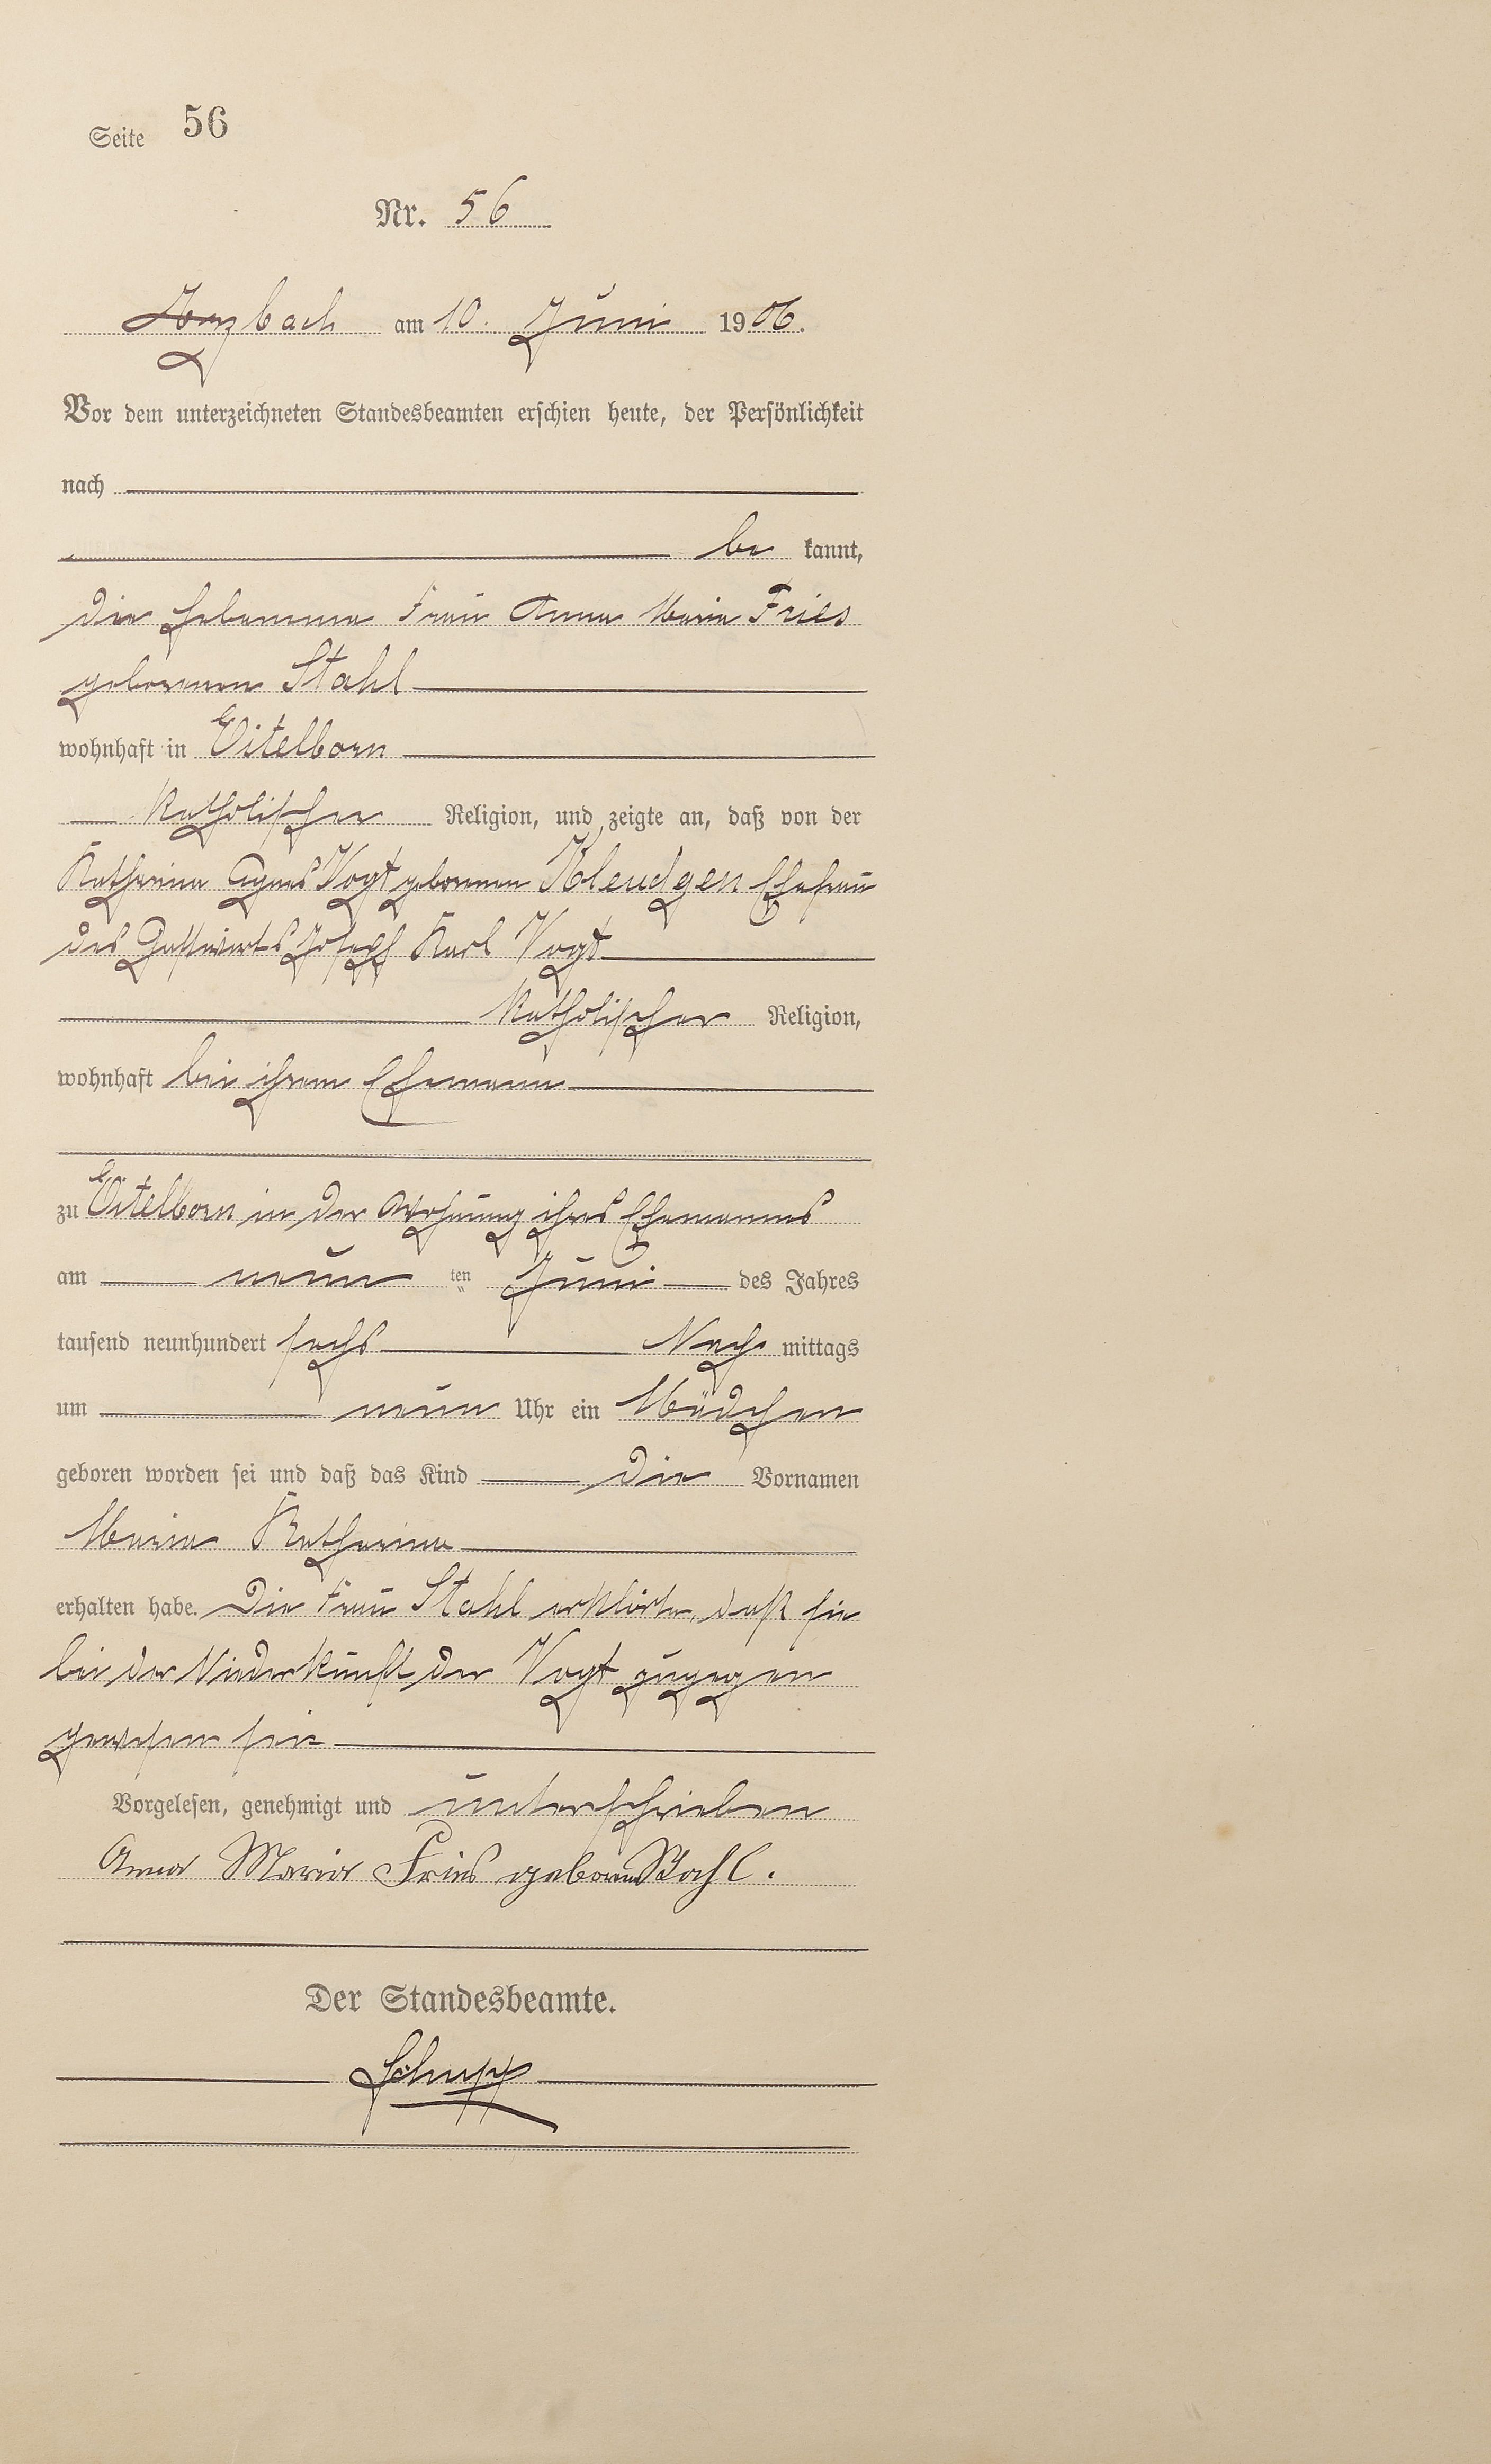 Seite 56
Nr. 56
Arzbach am 10. Juni 1906.
Vor dem unterzeichneten Standesbeamten erschien heute, der Persönlichkeit
nach
be kannt,
die Hebamme Frau Anna Maria Fries
geborenen Stahl
wohnhaft in Eitelborn
katholischer Religion, und zeigte an, daß von der
Katharina Agnes Vogt geborenen Kleudgen Ehefrau
des Gastwirts Joseph Karl Vogt
katholischer Religion,
wohnhaft bei ihrem Ehemann
zu Eitelborn in der Wohnung ihres Ehemannes
am neun ten Juni des Jahres
tausend neunhundert sechs Nach mittags
um neun Uhr ein Mädchen
geboren worden sei und daß das Kind die Vornamen
Maria Katharina
erhalten habe. Die Frau Stahl erklärte, daß sie
bei der Niederkunft der Vogt zugegen
gewesen sei
Vorgelesen, genehmigt und unterschrieben
Anna Maria Fries geborene Stahl.
Der Standesbeamte.
Schupp